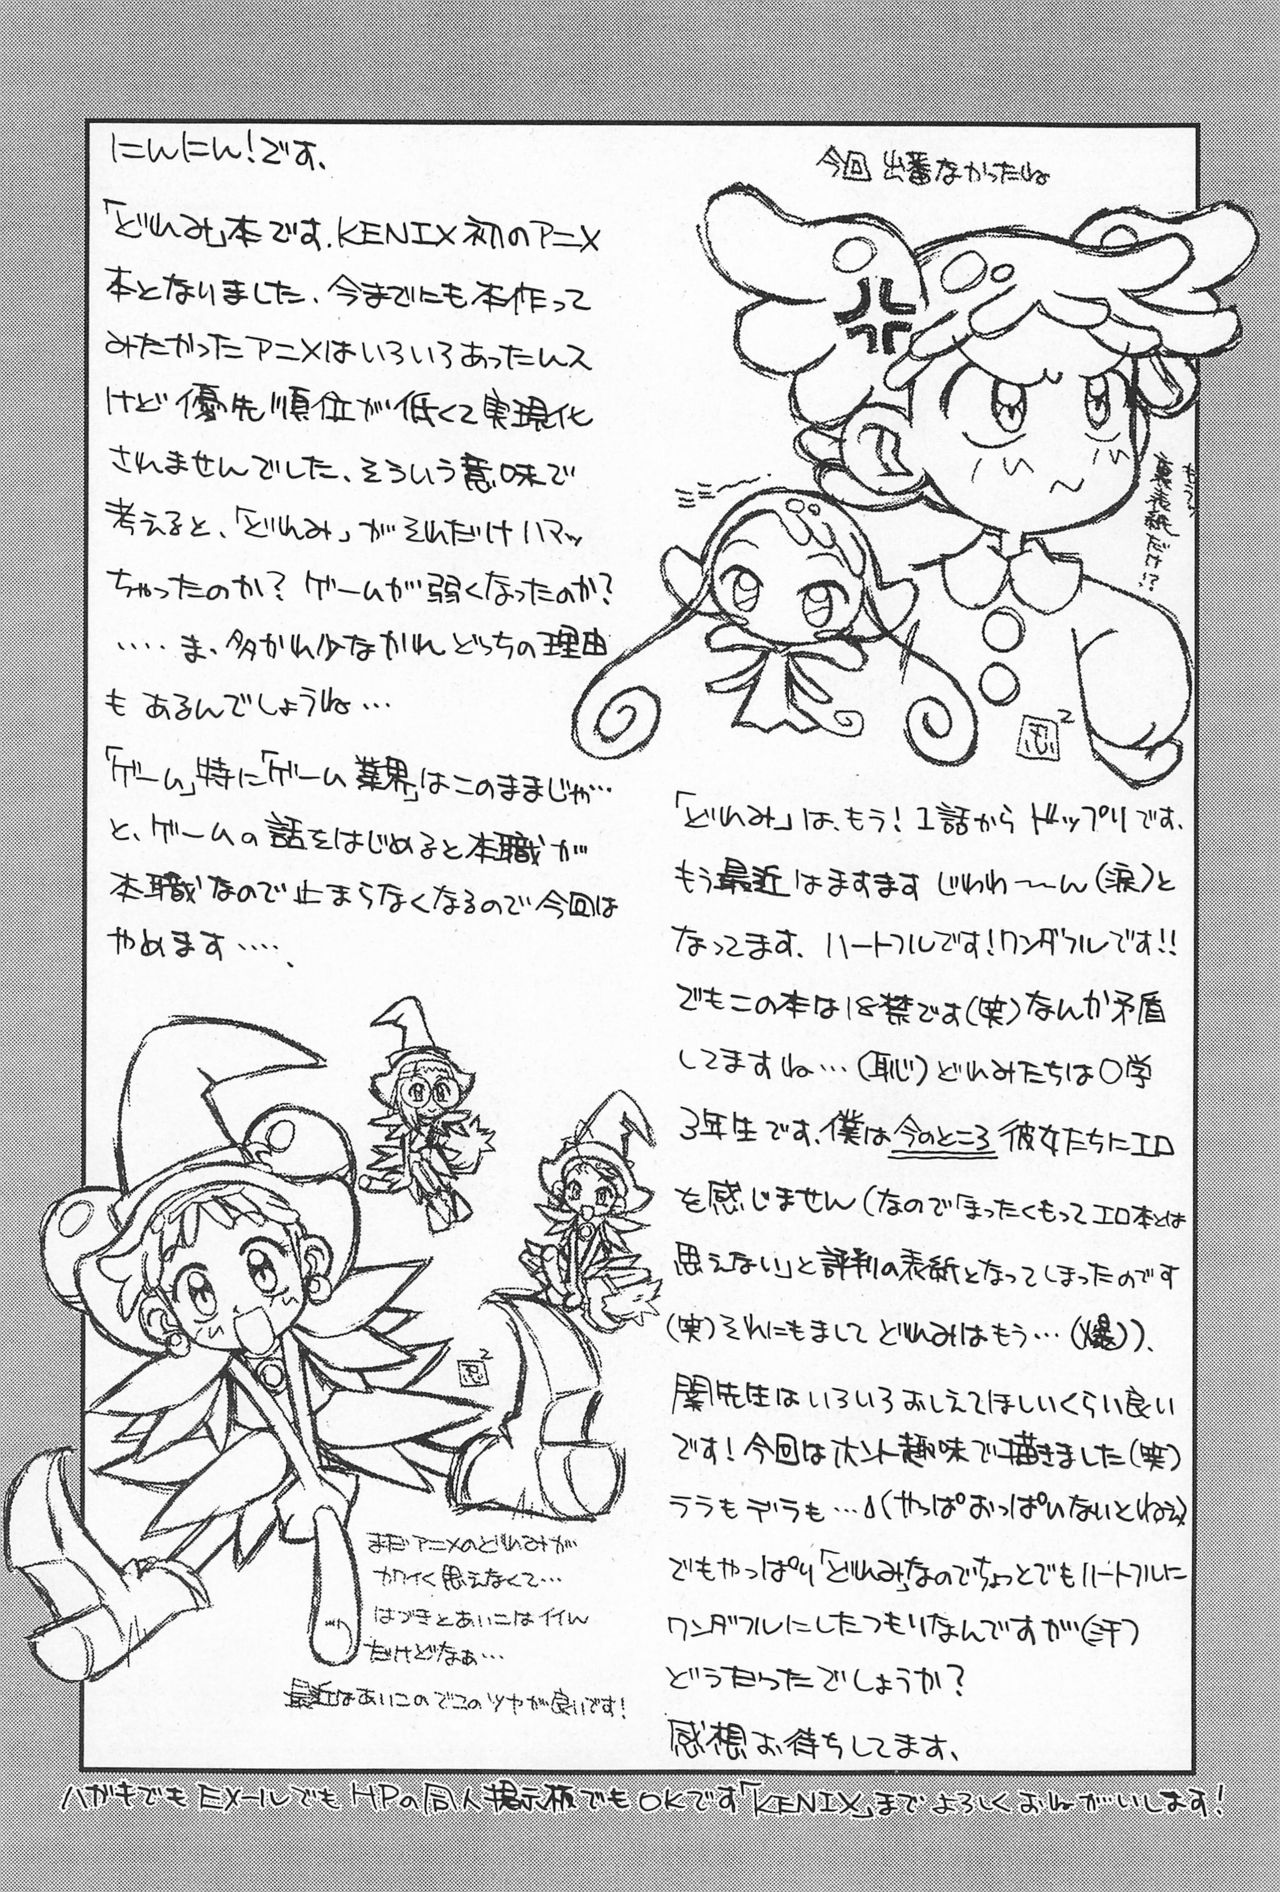 にんにん!です、
「どれみ」本です、KENIX初のアニメ
本となりました、今までにも本作って
みたかったアニメはいろいろあったんス
けど優先順位が低くて実現化
されませんでした、そういう意味で
考えると、「どれみ」がそれだけハマッ
ちゃったのか?ゲームが弱くなったのか?
‥‥ま、多かれ少なかれどっちの理由
もあるんでしょうね…
「ゲーム」特に「ゲーム業界」はこのままじゃ…
と、ゲームの話をはじめると本職が
本職なので止まらなくなるので今回は
やめます‥‥、
今回出番なかったね
もう
裏表紙だけ!?
忍2
「どれみ」は、もう!1話からドップリです、
もう最近はますますじわわ〜ん(涙)と
なってます、ハートフルです!ワンダフルです!!
でもこの本は18禁です(笑)なんか矛盾
してますね…(恥)どれみたちは〇学
3年生です、僕は今のところ彼女たちにエロ
を感じません(なので「まったくもってエロ本とは
思えない」と評判の表紙となってしまったのです
(笑)それにもましてどれみはもう…(爆))、
関先生はいろいろおしえてほしいくらい良い
です!今回はホント趣味で描きました(笑)
ララもデラも…(やっぱおっぱいないとねぇ)
でもやっぱり「どれみ」なのでちょっとでもハートフルに
ワンダフルにしたつもりなんですが(汗)
どうだったでしょうか?
感想お待ちしてます、
忍2
まだアニメのどれみが
カワイく思えなくて…
はづきとあいこはイイん
だけどなぁ…
最近はあいこのでこのツヤが良いです!
ハガキでもEメールでもHPの同人掲示板でもOKです「KENIX」までよろしくおねがいします!